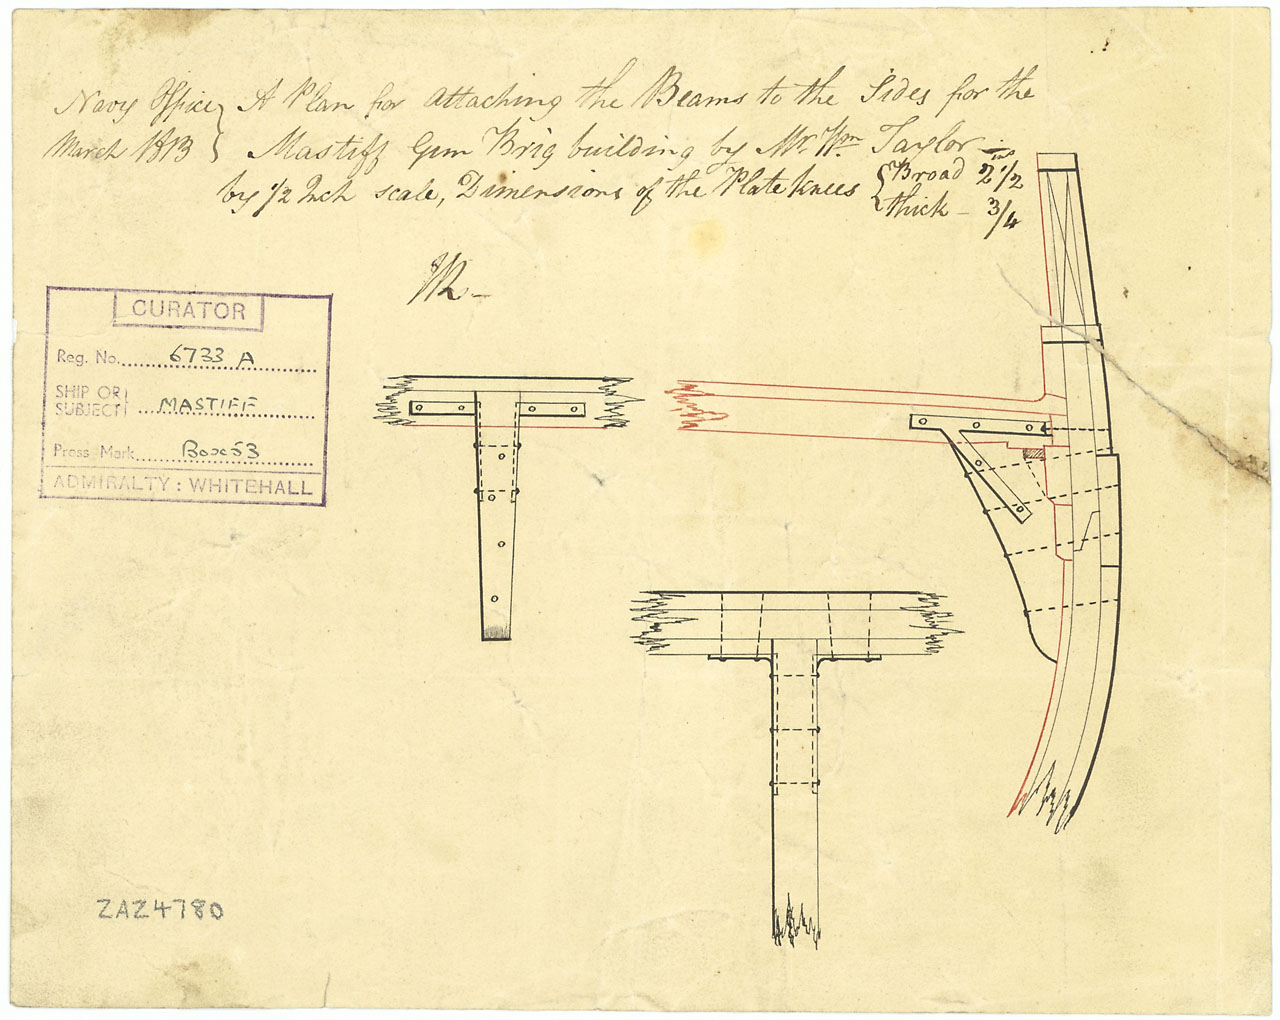 Navy Office } A Plan for attaching the Beams to the Sides for the
March 1813 } Mastiff Gun Brig building by Mr. Wm. Taylor -
by 1/2 Inch scale, Dimensions of the Plate knees { Broad 2 1/2 ins
thick - 3/4
CURATOR
Reg. No. 6733 A
SHIP OR SUBJECT MASTIFF
Press Mark Box 53
ADMIRALTY : WHITEHALL
ZAZ4780